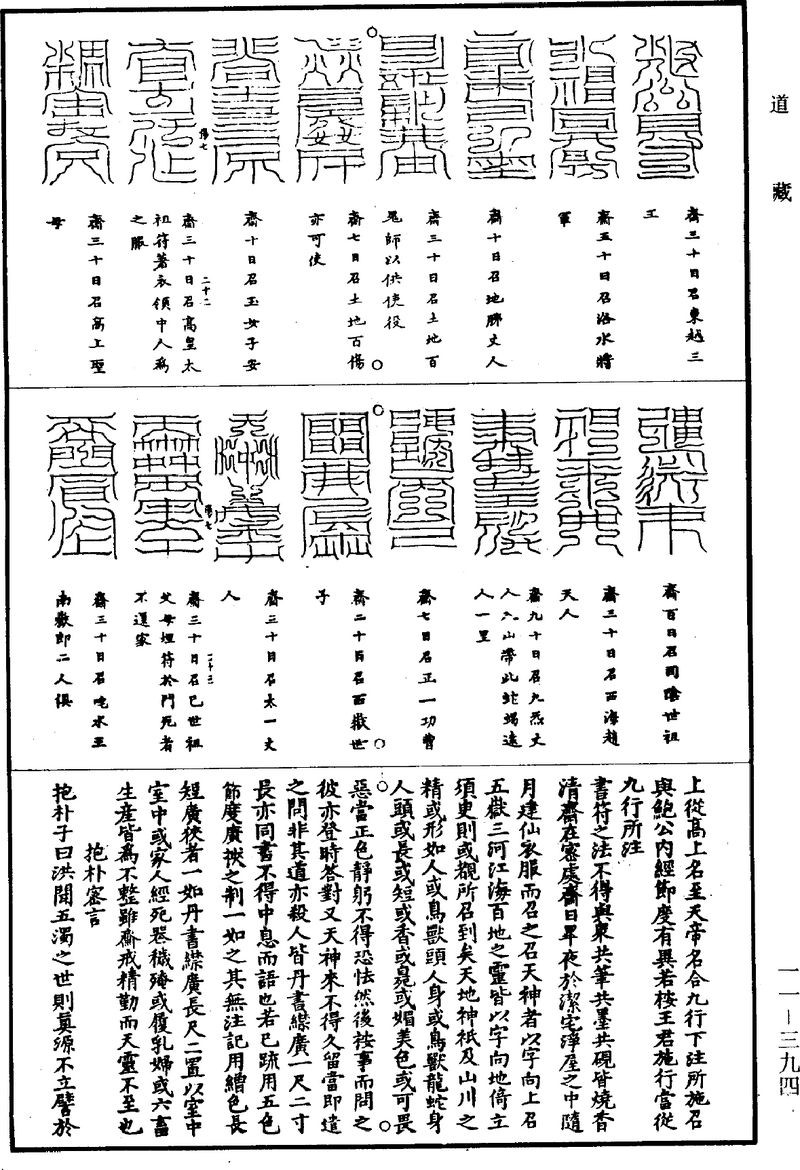 道藏
齋三十日召東越三
王
齋五十日召洛水將
軍
齋十日召地髀丈人
齋三十日召土地百
鬼師以供使役
齋七日召土地百傷
亦可使
齋十日召玉女子安
傷七
二十二
齋三十日召高皇太
祖符著衣領中人為
之服
齋三十日召高上聖
母
齋百日召司陰世祖
齋三十日召西海趙
天人
齋九十日召九炁丈
人六山帶此蛇蝎遠
人一里
齋七日召正一功曹
齋二十日召西嶽世
子
齋三十日召太一丈
人
傷七
二十三
齋三十日召已世祖
父母埋符於門死者
不還家
齋三十日召吃水王
南嶽郎二人俱
上從高上名至天帝名合九行下注所施召
與鮑公內經節度有異若按王君施行當從
九行所注
書符之法不得與衆共筆共墨共硯皆燒香
清齋在密處齋日早夜於潔宅淨屋之中隨
月建仙衣服而召之召天神者以字向上召
五嶽三河江海百地之靈皆以字向地倚立
須臾則或覩所召到矣天地神祇及山川之
精或形如人或鳥獸頭人身或鳥獸龍蛇身
人頭或長或短或香或臭或媚美色或可畏
惡當正色靜躬不得恐怯然後按事而問之
彼亦登時荅對又天神來不得久留當即遣
之問非其道亦殺人皆丹書繒廣一尺二寸
長亦同書不得中息而語也若已疏用五色
節度廣狹之制一如之其無注記用繒色長
短廣狹者一如丹書繒廣長尺二置以室中
室中或家人經死喪穢殗或履乳婦或六畜
生產皆為不整雖齋戒精勤而天靈不至也
抱朴密言
抱朴子曰洪聞五濁之世則莫源不立譬於
一一—三九四